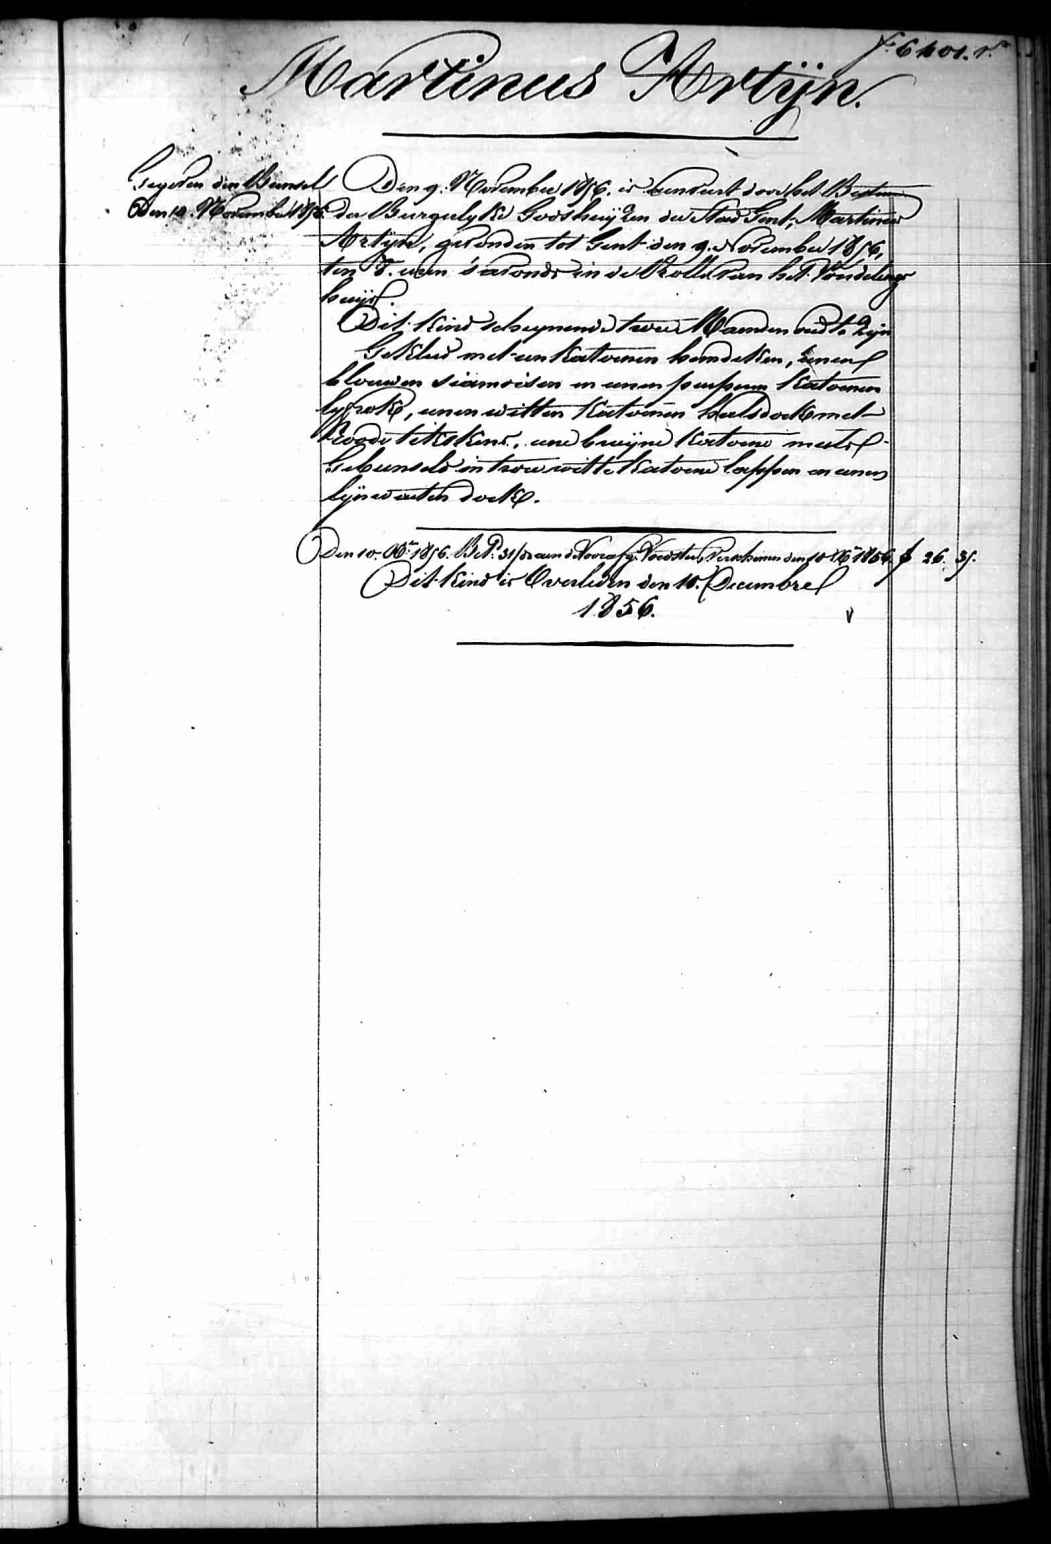 f.° 6401. r.°
Martinus Artijn.
Gegeven den Bunsel
Den 10. November 1856.
Den 9. November 1856. is aenveert door het Bestuer
der Burgelyke Godshuyzen der Stad Gent, Martinus
Artijn, gevonden tot Gent den 9. November 1856,
ten 8. uren 's avonds in de Rolle van het Vondelinge
huijs.
Dit kind schynende twee Maenden oud te zijn
Gekleed met een katoenen hemdeken, eenen
blauwen siamoisen en eenen peerpuren katoenen
lyfrok, eenen witten katoenen halsdoek met
roode titskens, eene bruyne katoene muts
Gebunseld in twee witte katoene lappen en eenen
lijnwaeten doek.
Den 10. Xb. 1856. Bet. 31/ aen de Voedster, Verschenen den 10 Xb. 1856. f 26. 35.
Dit kind is Overleden den 10. Decembre
1856.